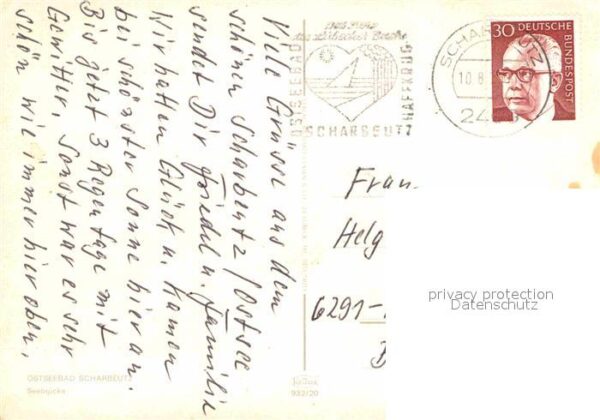 Viele Grüsse aus dem
schönen Scharbeutz/Ostsee
sendet Dir Friedel u. Familie
Wir hatten Glück u. kamen
bei schönster Sonne hier an.
Bis jetzt 3 Regentage mit
Gewitter, sonst war es sehr
schön wie immer hier oben.
OSTSEEBAD SCHARBEUTZ
Seebrücke
Das Herz
der Lübecker Bucht
OSTSEEBAD
HAFFKRUG
SCHARBEUTZ
10.8
24
30 DEUTSCHE
BUNDESPOST
Frau
Helg
6291-
privacy protection
Datenschutz
982/20